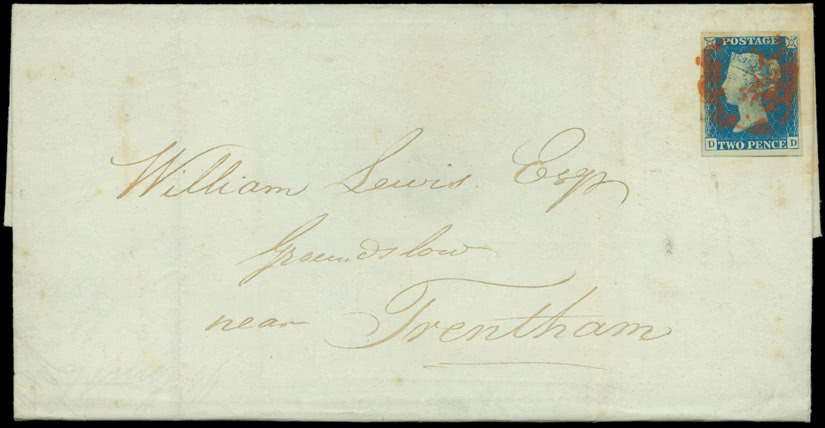 POSTAGE
D TWO PENCE D
William Lewis Esqr
Groundslow
near Trentham